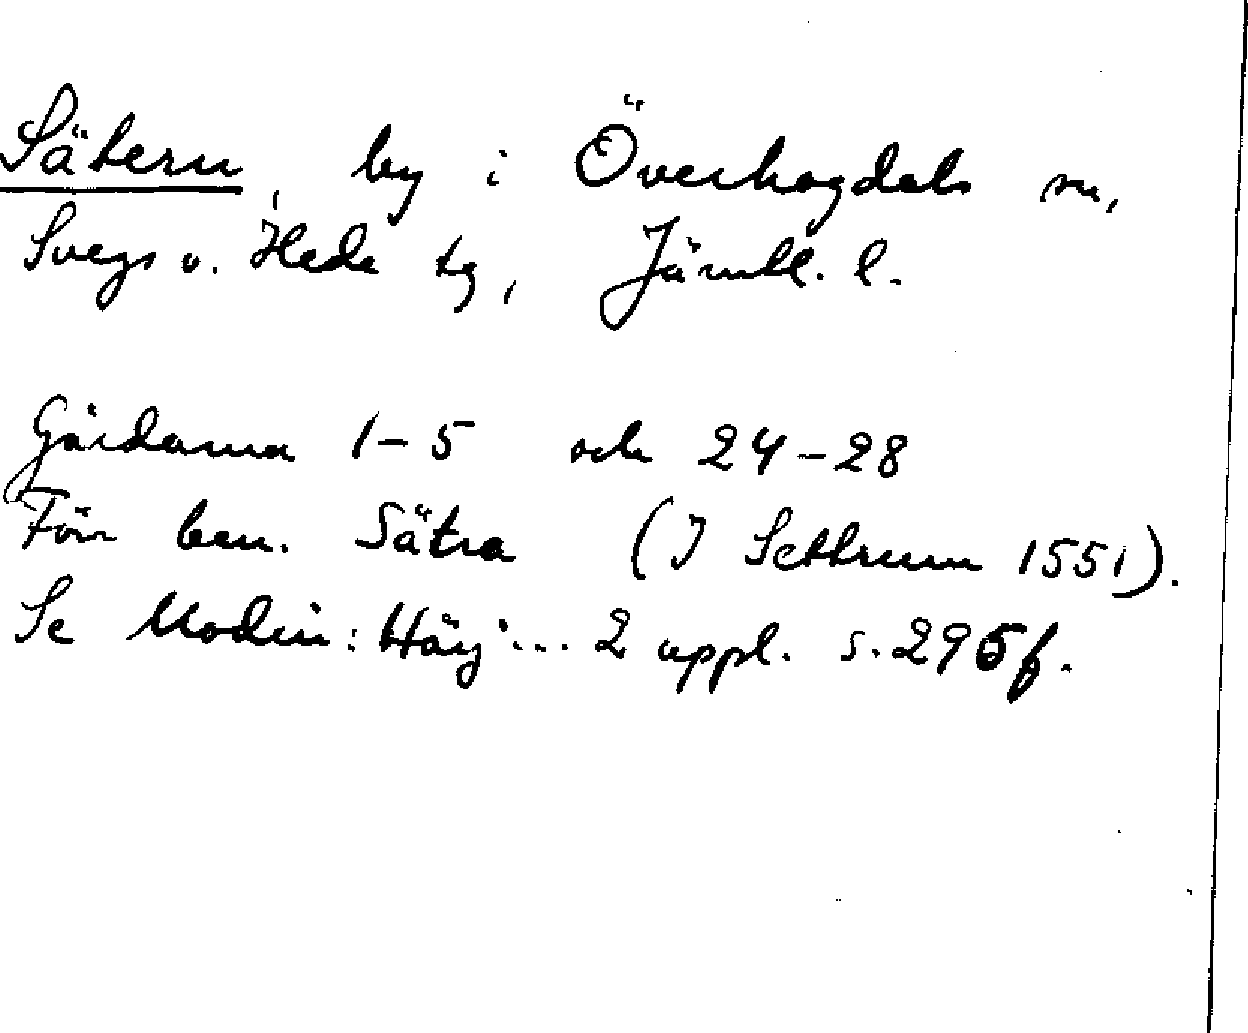 Sätern, by i Överhogdals sn,
Svegs o. Hede tg, Jämtl. l.
Gårdarna 1-5 och 24-28
Förr ben. Sätra (J Settrum 1551).
Se Modin: Härj... 2 uppl. s. 295f.